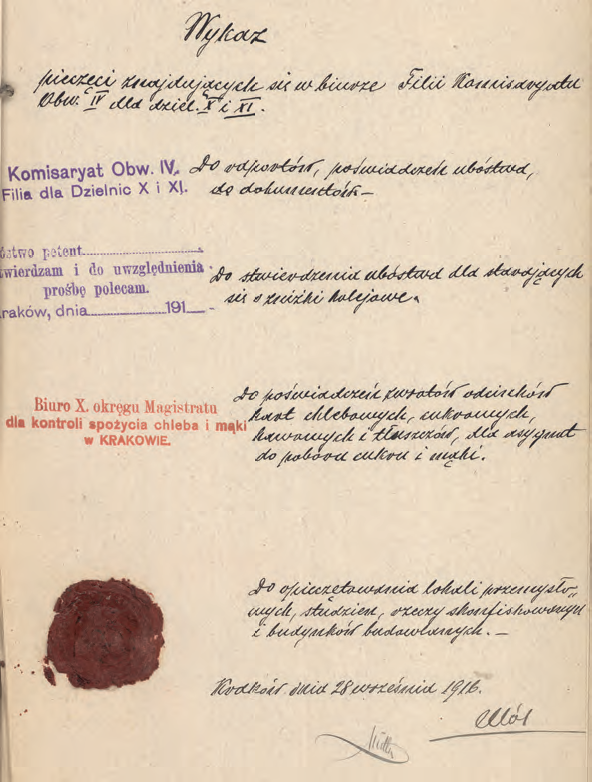 Wykaz
pieczęci znajdujących się w biurze Filii Komisaryatu
Obw. IV dla dziel. X i XI.
Komisaryat Obw. IV.
Filia dla Dzielnic X i XI.
Do raportów, poświadczeń ubóstwa,
do dokumentów.—
óstwo petent
twierdzam i do uwzględnienia
prośbę polecam.
raków, dnia 191
Do stwierdzenia ubóstwa dla starających
się o zniżki kolejowe.
Biuro X. okręgu Magistratu
dla kontroli spożycia chleba i mąki
w KRAKOWIE.
Do poświadczeń zwrotów odcinków
kart chlebowych, cukrowych,
kawowych i tłuszczów, dla asygnat
do poboru cukru i mąki.
Do opieczętowania lokali przemysło„
wych, studzien, rzeczy skonfiskowanych
i budynków budowlanych.—
Kraków dnia 28 września 1916.